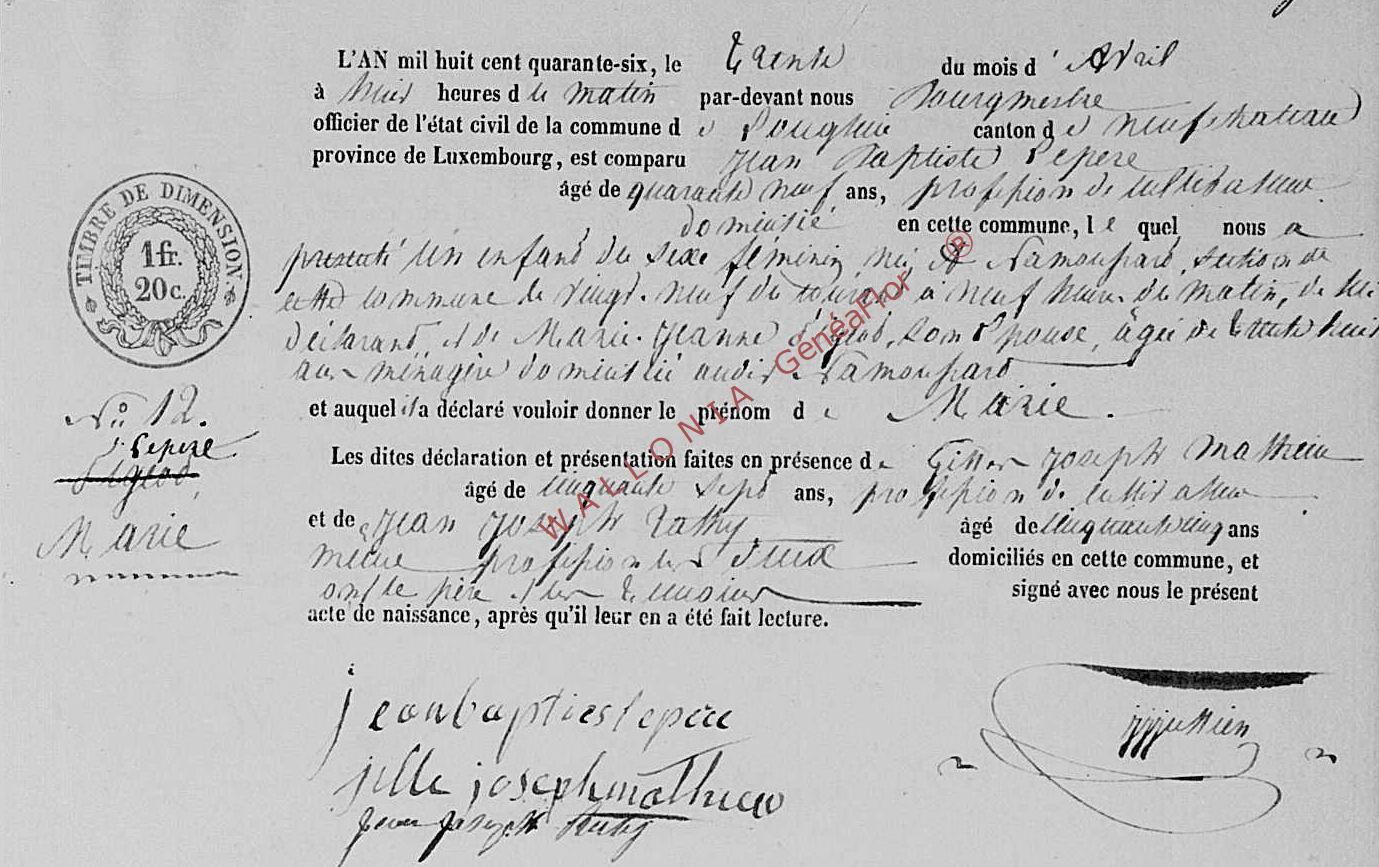 L'AN mil huit cent quarante-six, le Trente du mois d' Avril
à huit heures d u matin par-devant nous Bourgmestre
officier de l'état civil de la commune d e canton d e neufchateau
province de Luxembourg, est comparu Jean Baptiste Pepere
âgé de quarante neuf ans, profession de cultivateur
domicilié en cette commune, le quel nous a
presenté un enfant du sexe féminin, né à Namoussard, section de
cette commune le vingt-neuf du courant à neuf heures du matin, de lui
déclarant et de Marie-Jeanne son Epouse, âgée de trente huit
ans ménagère domiciliée audit Namoussard
et auquel il a déclaré vouloir donner le prénom d e Marie.
Les dites déclaration et présentation faites en présence d e Gilles Joseph Mathieu
âgé de cinquante sept ans, profession de cultivateur
et de Jean Joseph âgé de cinquante cinq ans
même profession les deux domiciliés en cette commune, et
ont le père et les témoins signé avec nous le présent
acte de naissance, après qu'il leur en a été fait lecture.
TIMBRE DE DIMENSION
1 fr.
20 c.
No 12.
Pepere
Marie
jeanbaptiestepere
jille josephmathieu
Jean Joseph
WALLONIA GénéaFlor ®